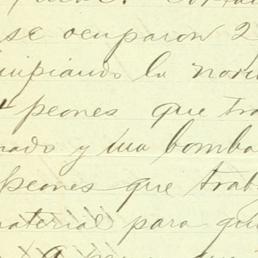 se ocuparon 2
limpiando la noria
4 peones que tra
nado y una bomba
peones que trab
material para